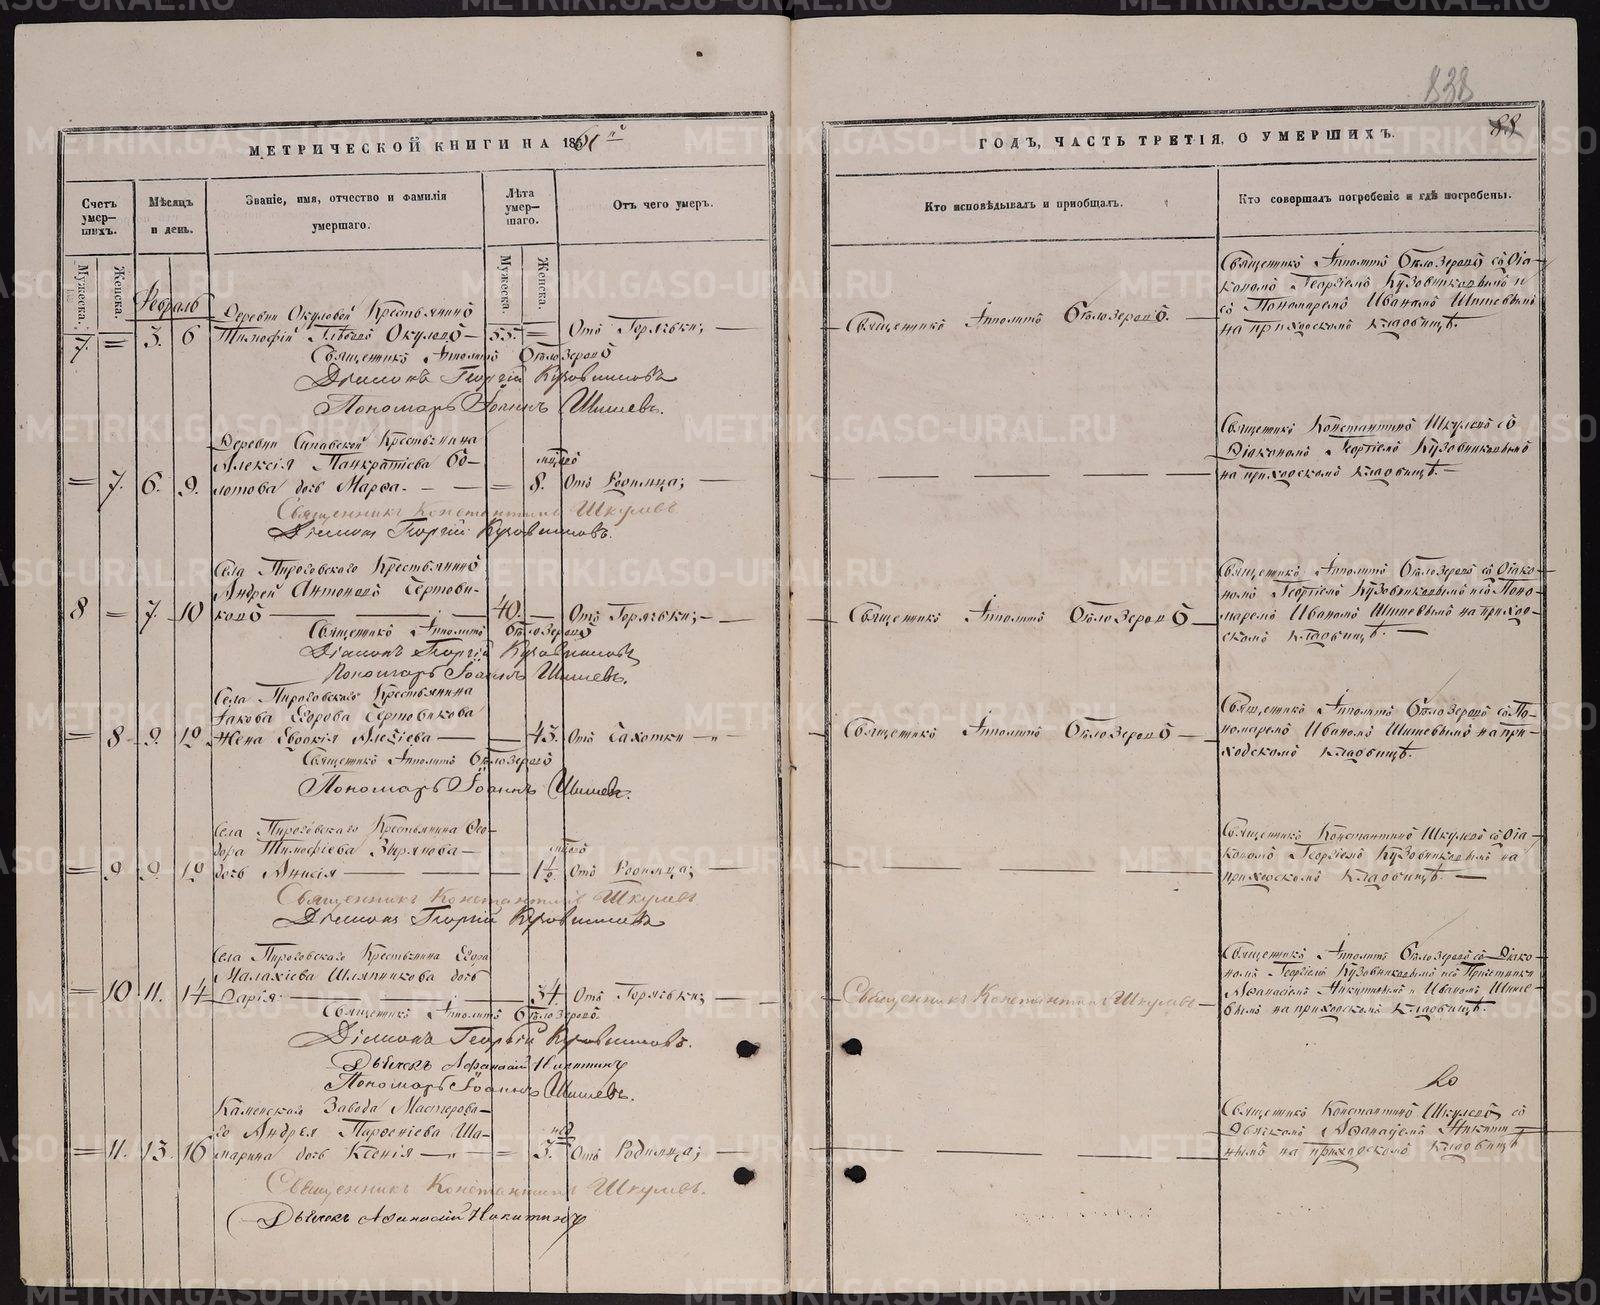 838
88
МЕТРИЧЕСКОЙ КНИГИ НА 1861й
ГОДЪ, ЧАСТЬ ТРЕТІЯ, О УМЕРШИХЪ.
Счетъ умер-шихъ.
Мѣсяцъ и день.
Званіе, имя, отчество и фамилія умершаго.
Лѣта умер-шаго.
Отъ чего умеръ.
Кто исповѣдывалъ и пріобщалъ.
Кто совершалъ погребеніе и гдѣ погребены.
Мужеска.
Женска.
Мужеска.
Женска.
Февраль
Деревни Окуловой Крестьянинъ
7. = 3. 6 Тимофій Глѣбовъ Окуловъ — 55. = Отъ Горячки; —
Священникъ Ипполитъ Бѣлозеровъ
Діаконъ Георгій Кузовниковъ
Пономарь Іоаннъ Шишевъ.
Священникъ Ипполитъ Бѣлозеровъ.
Священникъ Ипполитъ Бѣлозеровъ съ Діа-
кономъ Георгіемъ Кузовниковымъ и
съ Пономаремъ Иваномъ Шишевымъ
на приходскомъ кладбищѣ.
Деревни Сипавской Крестьянина
Алексія Панкратіева Бо-
= 7. 6. 9. лотова дочь Марфа. — — = 8. Отъ Родимца; —
Священникъ Константинъ Шкулевъ
Діаконъ Георгій Кузовниковъ.
Священникъ Константинъ Шкулевъ съ
Діакономъ Георгіемъ Кузовниковымъ
на приходскомъ кладбищѣ. —
Села Пироговскаго Крестьянинъ
Андрей Антоновъ Чертови-
8 = 7. 10 ковъ — 40. — Отъ Горячки; —
Священникъ Ипполитъ Бѣлозеровъ
Діаконъ Георгій Кузовниковъ
Пономарь Іоаннъ Шишевъ.
Священникъ Ипполитъ Бѣлозеровъ —
Священникъ Ипполитъ Бѣлозеровъ съ Діако-
номъ Георгіемъ Кузовниковымъ и съ Поно-
маремъ Иваномъ Шишевымъ на приход-
скомъ кладбищѣ. —
Села Пироговскаго Крестьянина
Іакова Егорова Чертовикова
= 8 9. 12 Жена Евдокія Алексіева — — 45. Отъ Чахотки —
Священникъ Ипполитъ Бѣлозеровъ
Пономарь Іоаннъ Шишевъ.
Священникъ Ипполитъ Бѣлозеровъ —
Священникъ Ипполитъ Бѣлозеровъ съ По-
номаремъ Иваномъ Шишевымъ на при-
ходскомъ кладбищѣ.
Села Пироговскаго Крестьянина Ѳео-
дора Тимофіева Зырянова —
= 9 9. 12 дочь Анисія — 1½. Отъ Родимца; —
Священникъ Константинъ Шкулевъ
Діаконъ Георгій Кузовниковъ
Священникъ Константинъ Шкулевъ съ Діа-
кономъ Георгіемъ Кузовниковымъ на
приходскомъ кладбищѣ. —
Села Пироговскаго Крестьянина Егора
Малахіева Шляпникова дочь
= 10 11. 14 Дарія — 34. Отъ Горячки; —
Священникъ Ипполитъ Бѣлозеровъ.
Діаконъ Георгій Кузовниковъ.
Дьячекъ Афанасій Никитинъ
Пономарь Іоаннъ Шишевъ.
Священникъ Константинъ Шкулевъ —
Священникъ Ипполитъ Бѣлозеровъ съ Діако-
номъ Георгіемъ Кузовниковымъ и съ Причетники
Аѳанасіемъ Никитинымъ и Иваномъ Шише-
вымъ на приходскомъ кладбищѣ.
Каменскаго Завода Мастерова-
го Андрея Парѳеніева Ша-
= 11. 13. 16 марина дочь Ксенія — = нед 3. Отъ Родимца; —
Священникъ Константинъ Шкулевъ.
Дьячекъ Афанасій Никитинъ
Священникъ Константинъ Шкулевъ съ
Дьячкомъ Аѳанасіемъ Никити-
нымъ на приходскомъ кладбищѣ
METRIKI.GASO-URAL.RU